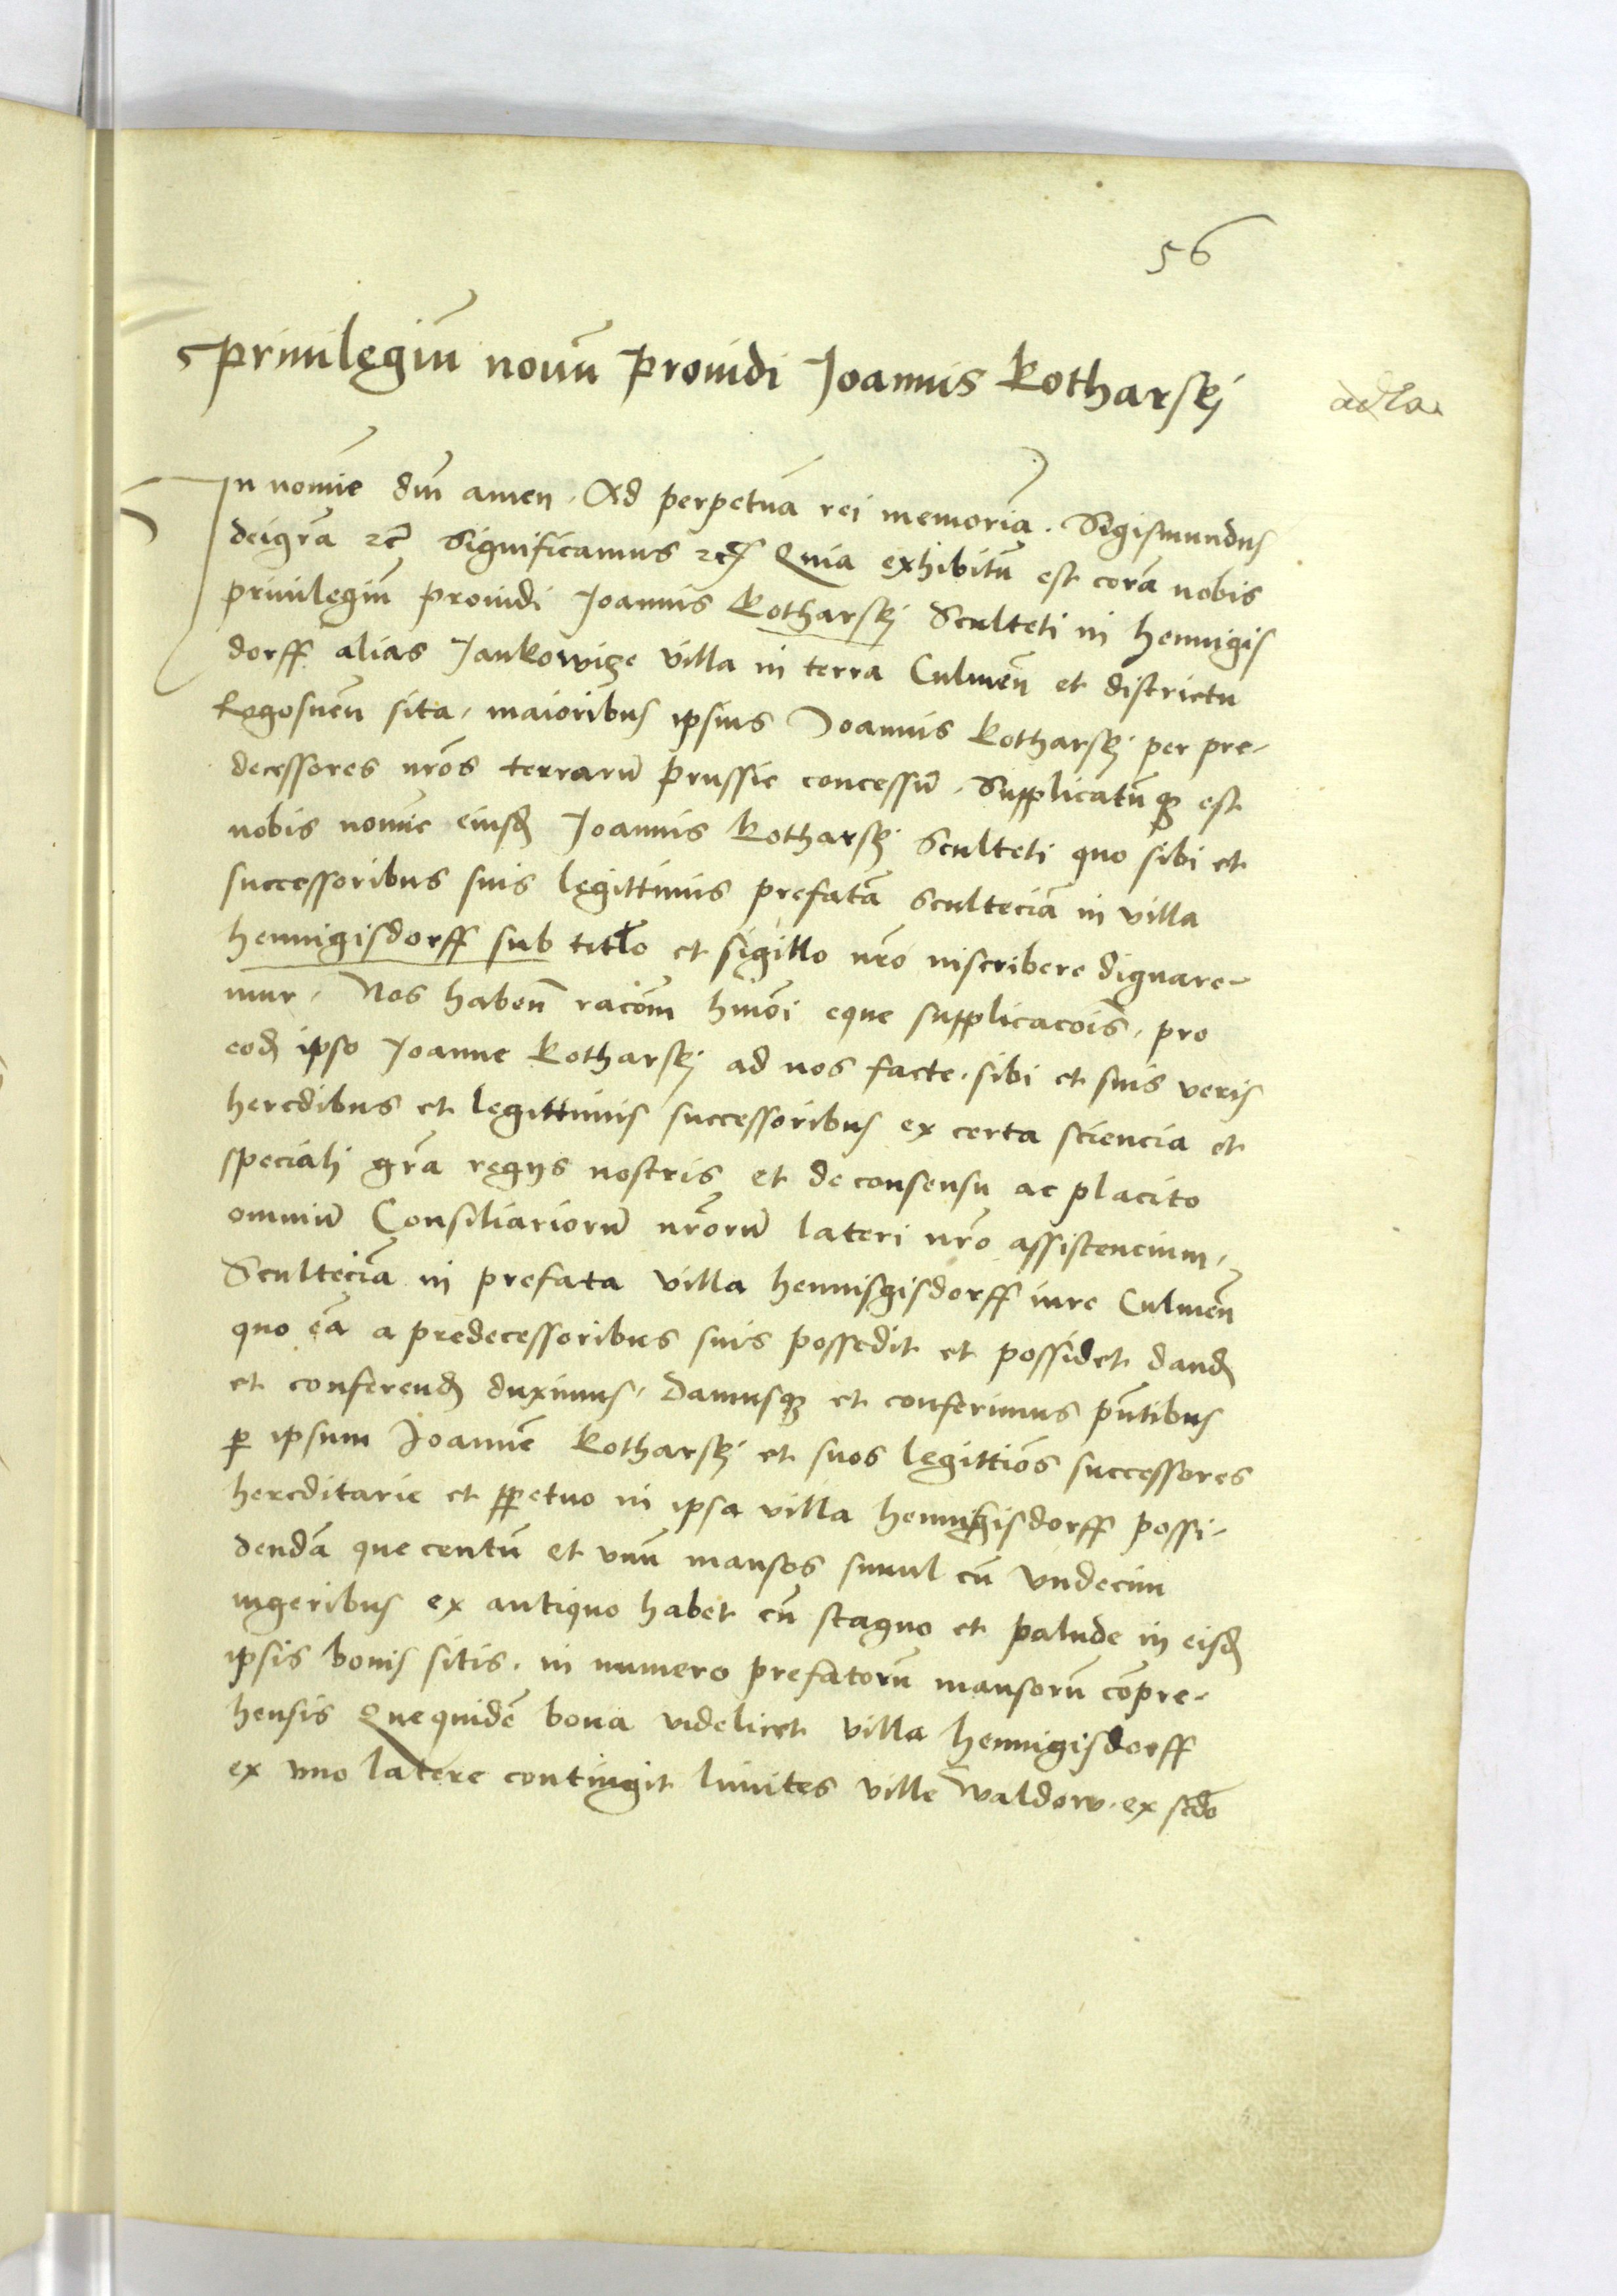 56
Priuilegiũ nouũ prouidi Joannis Kotharskj
In nomie dm̃ amen. Ad perpetuã rei memoriã. Sigismundus
deigr̃a rc̃ Significamus rc̃ Quia exhibitũ est corã nobis
priuilegiũ prouidi Joannis Kotharskj Sculteti in hennigis
dorff alias Jankowicze villa in terra Culmeñ et districtu
Rogosneñ sita, maioribus ipsius Joannis Kotharskj per pre-
decessores nr̃os terrarũ prussie concessũ. Supplicatũqʒ est
nobis nomie eiusđ Joannis Kotharskj Sculteti quo sibi et
successoribus suis legittimis prefatã sculteciã in villa
hennigisdorff sub titl̃o et sigillo nr̃o inscribere dignare-
mur, Nos habeñ racõm hm̃oi eque supplicacõis, pro
eođ ipso Joanne Kotharskj ad nos facte, sibi et suis veris
heredibus et legittimis successoribus ex certa sciencia et
speciali gr̃a regijs nostris et de consensu ac placito
omniũ Consiliariorũ nr̃orũ lateri nr̃o assistencium,
Scultecia͂ in prefata villa hennisgisdorff iure Culmeñ
quo eã a predecessoribus suis possedit et possidet danđ
et conferenđ duximus, Damusqʒ et conferimus pñtibus
ꝑ ipsum Joannẽ Kotharskj et suos legittiõs successores
hereditarie et ꝑpetuo in ipsa villa hennigisdorff possi-
dendã que centũ et vnũ mansos simul cũ vndecim
iugeribus ex antiquo habet cũ stagno et palude in eisđ
ipsis bonis sitis, in numero prefatorũ mansorũ cõpre-
hensis Quequidẽ bona videlicet villa hennigisdorff
ex vno latere contingit limites ville Waldow, ex scđo